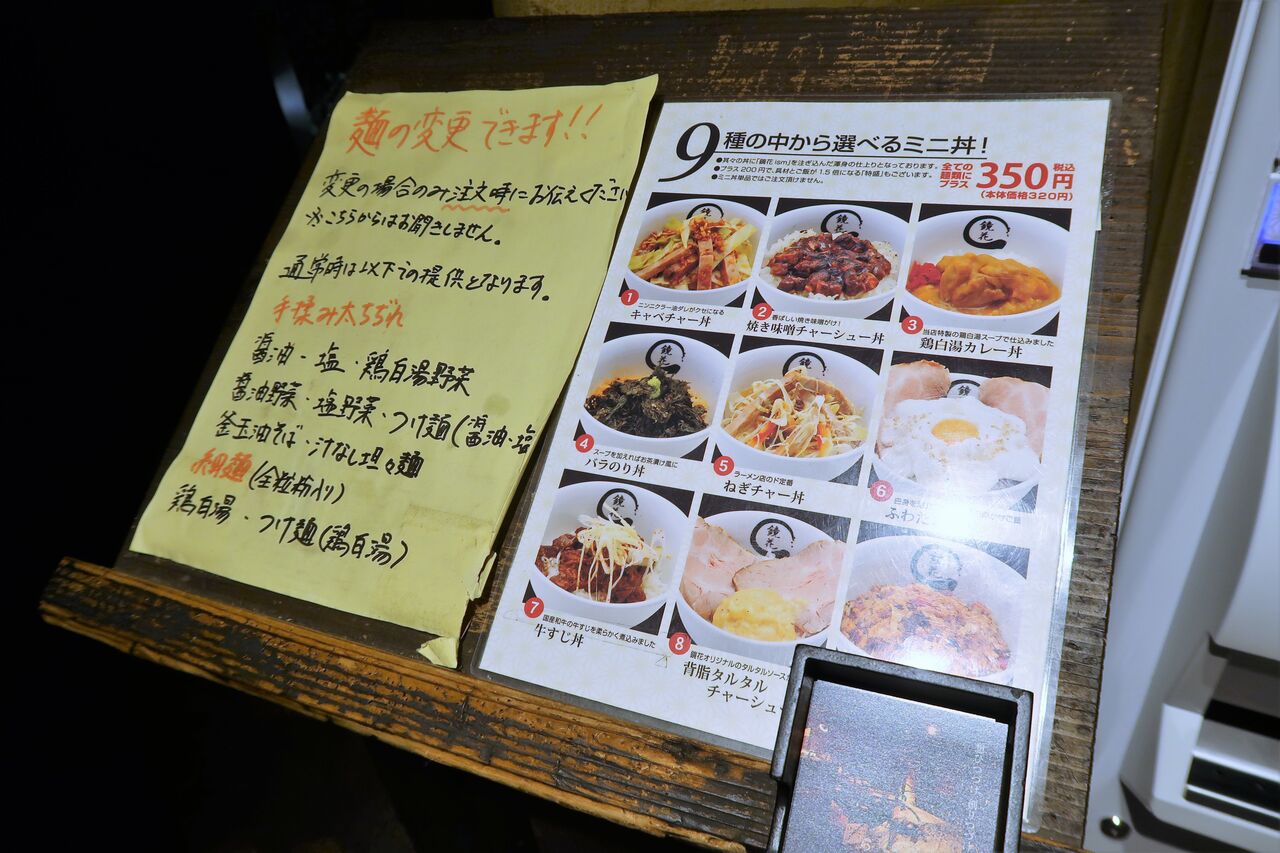 麺の変更できます!!
変更の場合のみ注文時にお伝えください
※こちらからはお聞きしません。
通常時は以下での提供となります。
手揉み太ちぢれ
醤油・塩・鶏白湯野菜
醤油野菜・塩野菜・つけ麺(醤油・塩
釜玉油そば・汁なし坦々麺
細麺(全粒粉入り)
鶏白湯・つけ麺(鶏白湯)
9種の中から選べるミニ丼!
●其々の丼に「鏡花 ism」を注ぎ込んだ渾身の仕上りとなっております。
●プラス200円で、具材とご飯が1.5倍になる「特盛」もございます。
●ミニ丼単品ではご注文頂けません。
全ての麺類にプラス 350円 税込
(本体価格320円)
鏡花
鏡花
鏡花
1 ニンニクラー油ダレがクセになる
キャベチャー丼
2 香ばしい焼き味噌がけ!
焼き味噌チャーシュー丼
3 当店特製の鶏白湯スープで仕込みました
鶏白湯カレー丼
鏡花
鏡花
鏡花
4 スープを加えればお茶漬け風に
バラのり丼
5 ラーメン店のド定番
ねぎチャー丼
6
ふわた
鏡花
鏡花
鏡花
7 国産和牛の牛すじを柔らかく煮込みました
牛すじ丼
8 鏡花オリジナルのタルタルソース
背脂タルタル
チャーシュー